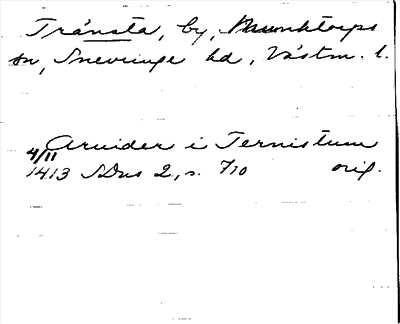 Tränsta, by, Munktorps
sn, Snevringe hd, Västm. l.
Aruider i Ternistum
4/11
1413 SDns 2, s. 710 orig.